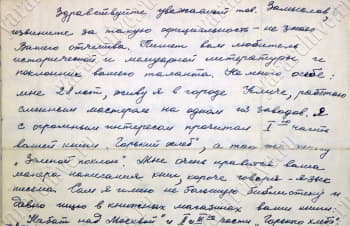 Здравствуйте уважаемый тов. Замыслов,
извините за такую официальность – не знаю
Вашего отчества. Пишет вам любитель
исторической и мемуарной литературы и
поклонник вашего таланта. Немного о себе:
мне 28 лет, живу я в городе работаю
сменным мастером на одном из заводов. Я
с огромным интересом прочитал I ую часть
вашей книги „Горький хлеб", а так же книгу
„Зеленой поклон". Мне очень нравится ваша
манера написания книг, короче говоря – язык
письма. Сам я имею не большую библиотеку и
давно ищу в книжных магазинах ваши книги:
„Набат над Москвой" и II и III части „Горького хлеба"